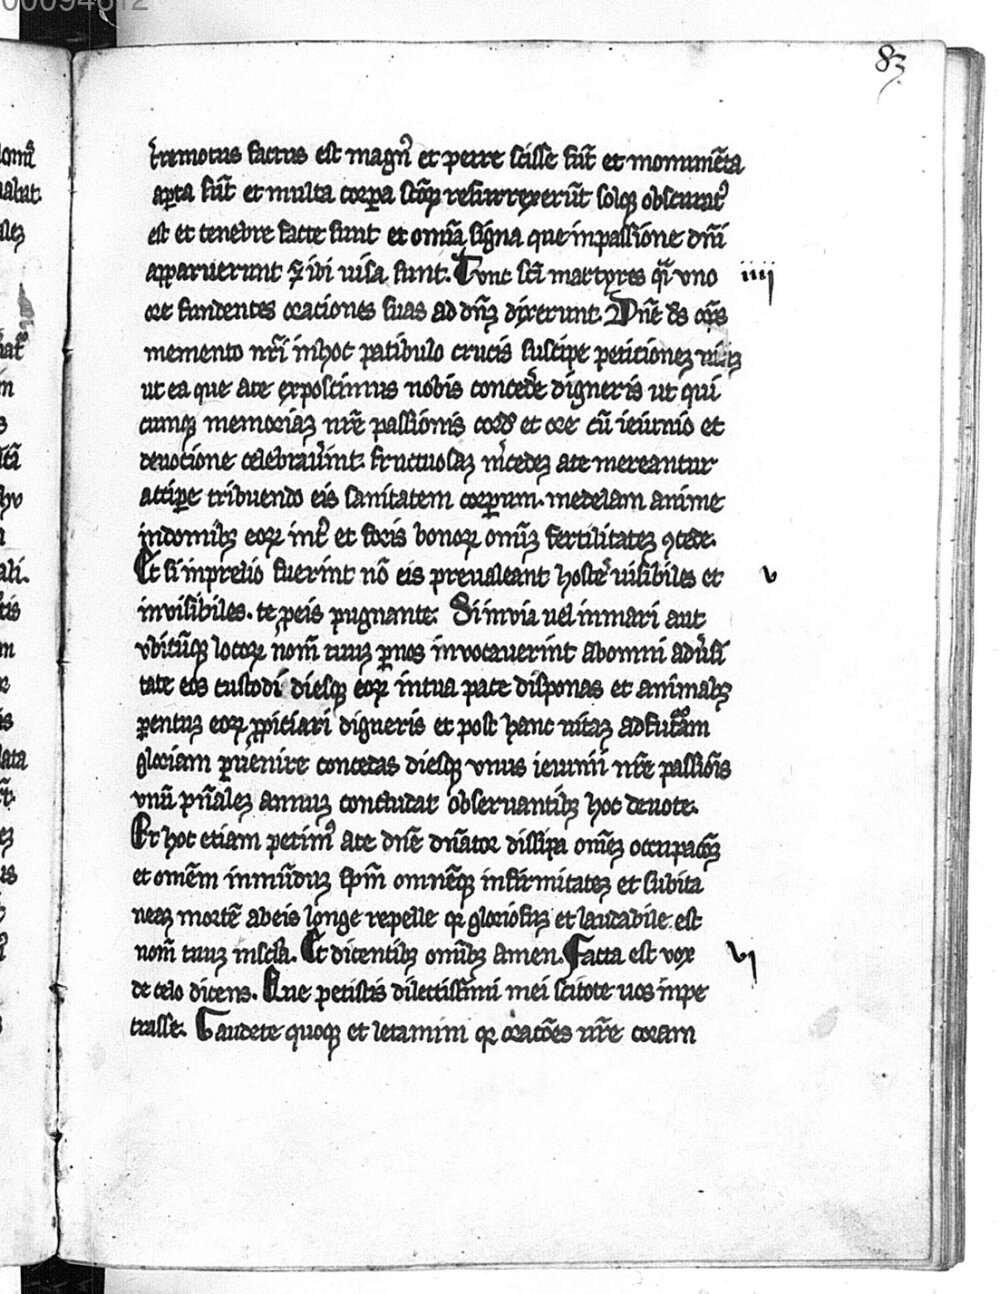 00094612
83
t̾remotus factus est magn᷒ et petre scisse su̅t et monume̅ta
ap̲ta su̅t et multa corp̲a sc̅oꝝ resurrexeru̅t solqꝫ obscurat᷒
est et tenebre facte sunt et om̅ia signa que inpassione dn̅i
apparuerunt ⁊ ibi uisa sunt. Tunc sc̅i martyres q̅i uno
iiii
ore fundentes orationes suas ad dn̅ꝫ dyxerunt. Dn̅e ds om̅ps
memento nr̅i inhoc patibulo crucis suscipe petitioneꝫ
ut ea que ate exposcimus nobis conced̾e digneris ut qui
cumqꝫ memoriaꝫ nr̅e passionis cord̾ et ore cu̅ ieiunio et
deuotione celebrau̾int. fructuosaꝫ m̾cedeꝫ ate mereantur
accip̲e tribuendo eis sanitatem corp̲um. medelam anime
indomibꝫ eoꝝ int᷒ et foris bonoꝝ omniu̅ fertilitateꝫ ꝯcede.
Et si inprelio fuerint no̅ eis preualeant hoste᷒ uisibiles et
v
inuisibiles. te p̲eis pugnante. Si inuia uel inmari aut
vbicu̅qꝫ locoꝝ nom̅ tuuꝫ p̲nos inuocauerint abomni adu̾si
tate eos custodi diesqꝫ eoꝝ intua pace disponas et animabꝫ
p̲entuꝫ eoꝝ ꝓpiciari digneris et post hanc uitaꝫ adfut᷒am
gloriam p̲uenire concedas diesqꝫ vnus ieiunii nr̅e passio̅is
vnu̅ pn̅aleꝫ annuꝫ concludat obseruantibꝫ hoc deuote.
Et hoc etiam petim᷒ ate dn̅e dn̅ator dissipa om̅eꝫ
et om̅em inmu̅duꝫ sp̅m omne̅qꝫ infirmitateꝫ et subita
neaꝫ morte̅ abeis longe repelle qꝛ gloriosuꝫ et laudabile est
nom̅ tuuꝫ insc̅la. Et dicentibꝫ omn̅ibꝫ amen. Facta est vox
vi
de celo dicens. Que petistis dilectissimi mei scitote uos inpe
trasse. Gaudete quoqꝫ et letamini qꝛ oratio̅es ur̅e coram